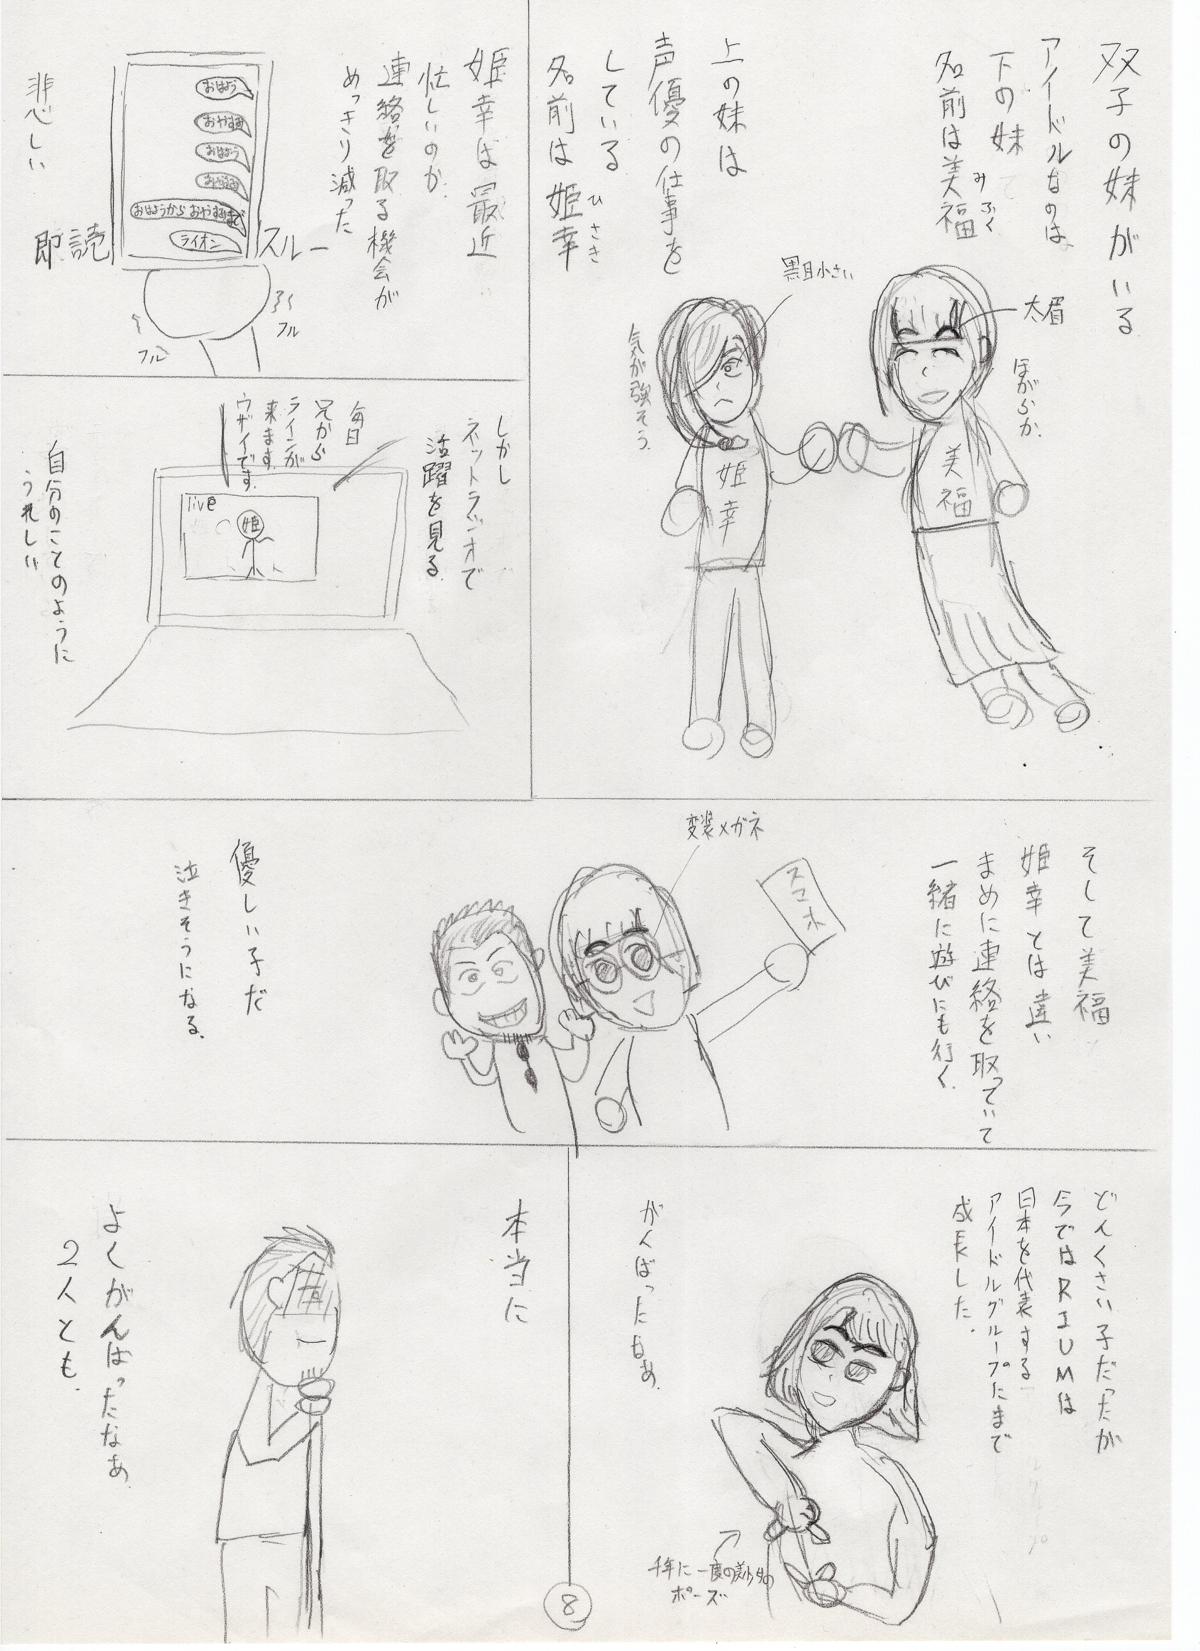 双子の妹がいる
アイドルなのは、
下の妹
名前は美福
みふく
太眉
ほがらか
美福
上の妹は
声優の仕事を
している
名前は姫幸
ひさき
黒目小さい
気が強そう
姫幸
姫幸は最近
忙しいのか
連絡を取る機会が
めっきり減った
おはよう
おやすみ
おはよう
おやすみ
おはようからおやすみまで
ライオン
即読
スルー
フル
フル
悲しい
しかし
ネットラジオで
活躍を見る
毎日
兄から
ラインが
来ます
ウザイです。
live
姫
自分のことのように
うれしい
そして美福
姫幸とは違い
まめに連絡を取っていて
一緒に遊びにも行く
変装メガネ
スマホ
優しい子だ
泣きそうになる
どんくさい子だったが
今ではRIUMは
日本を代表する
アイドルグループにまで
成長した。
がんばったなあ
千年に一度の美少女の
ポーズ
本当に
よくがんばったなあ
2人とも
8